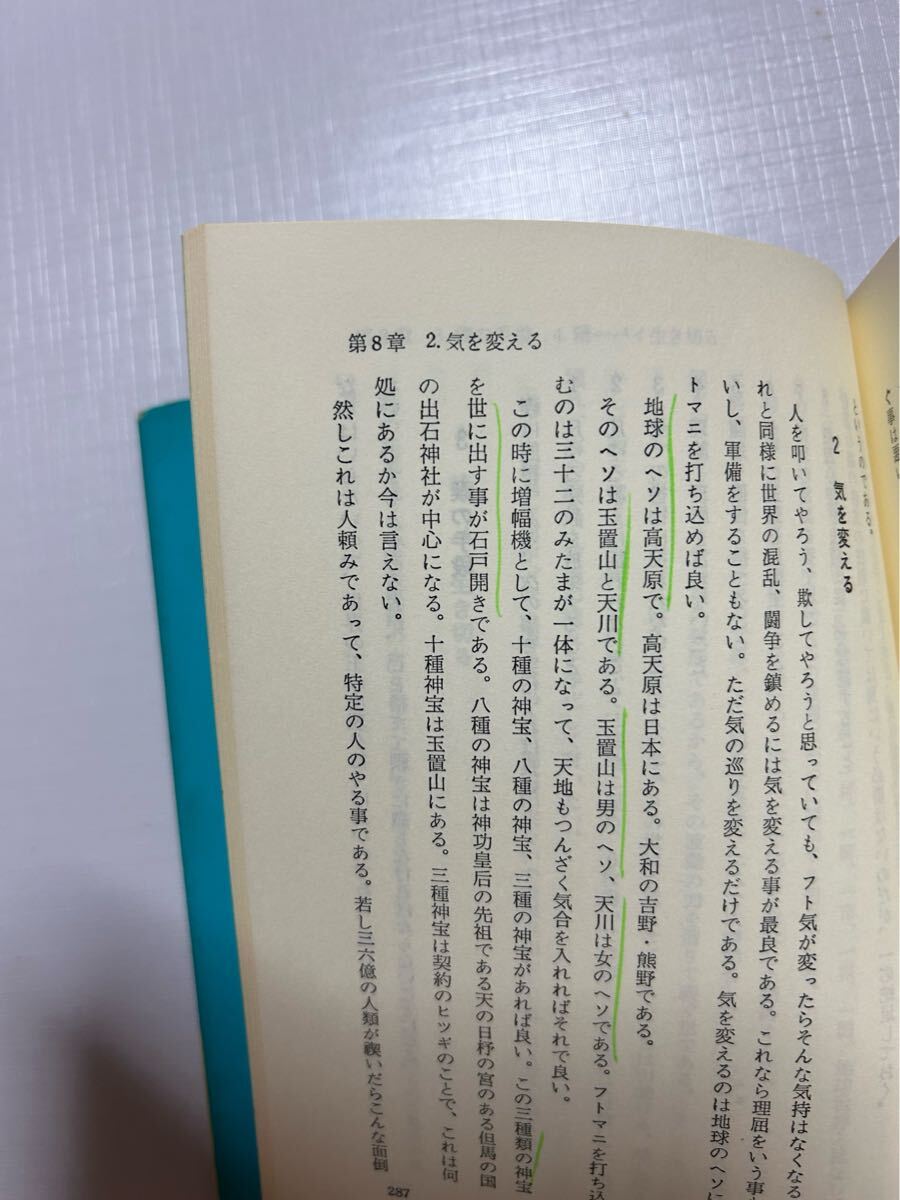 第8章　2.気を変える
2　気を変える
人を叩いてやろう、欺してやろうと思っていても、フト気が変ったらそんな気持はなくなる
れと同様に世界の混乱、闘争を鎮めるには気を変える事が最良である。これなら理屈をいう事
いし、軍備をすることもない。ただ気の巡りを変えるだけである。気を変えるのは地球のヘソに
トマニを打ち込めば良い。
地球のヘソは高天原で。高天原は日本にある。大和の吉野・熊野である。
そのヘソは玉置山と天川である。玉置山は男のヘソ、天川は女のヘソである。フトマニを打ち込
むのは三十二のみたまが一体になって、天地もつんざく気合を入れればそれで良い。
この時に増幅機として、十種の神宝、八種の神宝、三種の神宝があれば良い。この三種類の神宝
を世に出す事が石戸開きである。八種の神宝は神功皇后の先祖である天の日杼の宮のある但馬の国
の出石神社が中心になる。十種神宝は玉置山にある。三種神宝は契約のヒツギのことで、これは何
処にあるか今は言えない。
然しこれは人頼みであって、特定の人のやる事である。若し三六億の人類が禊いだらこんな面倒
287